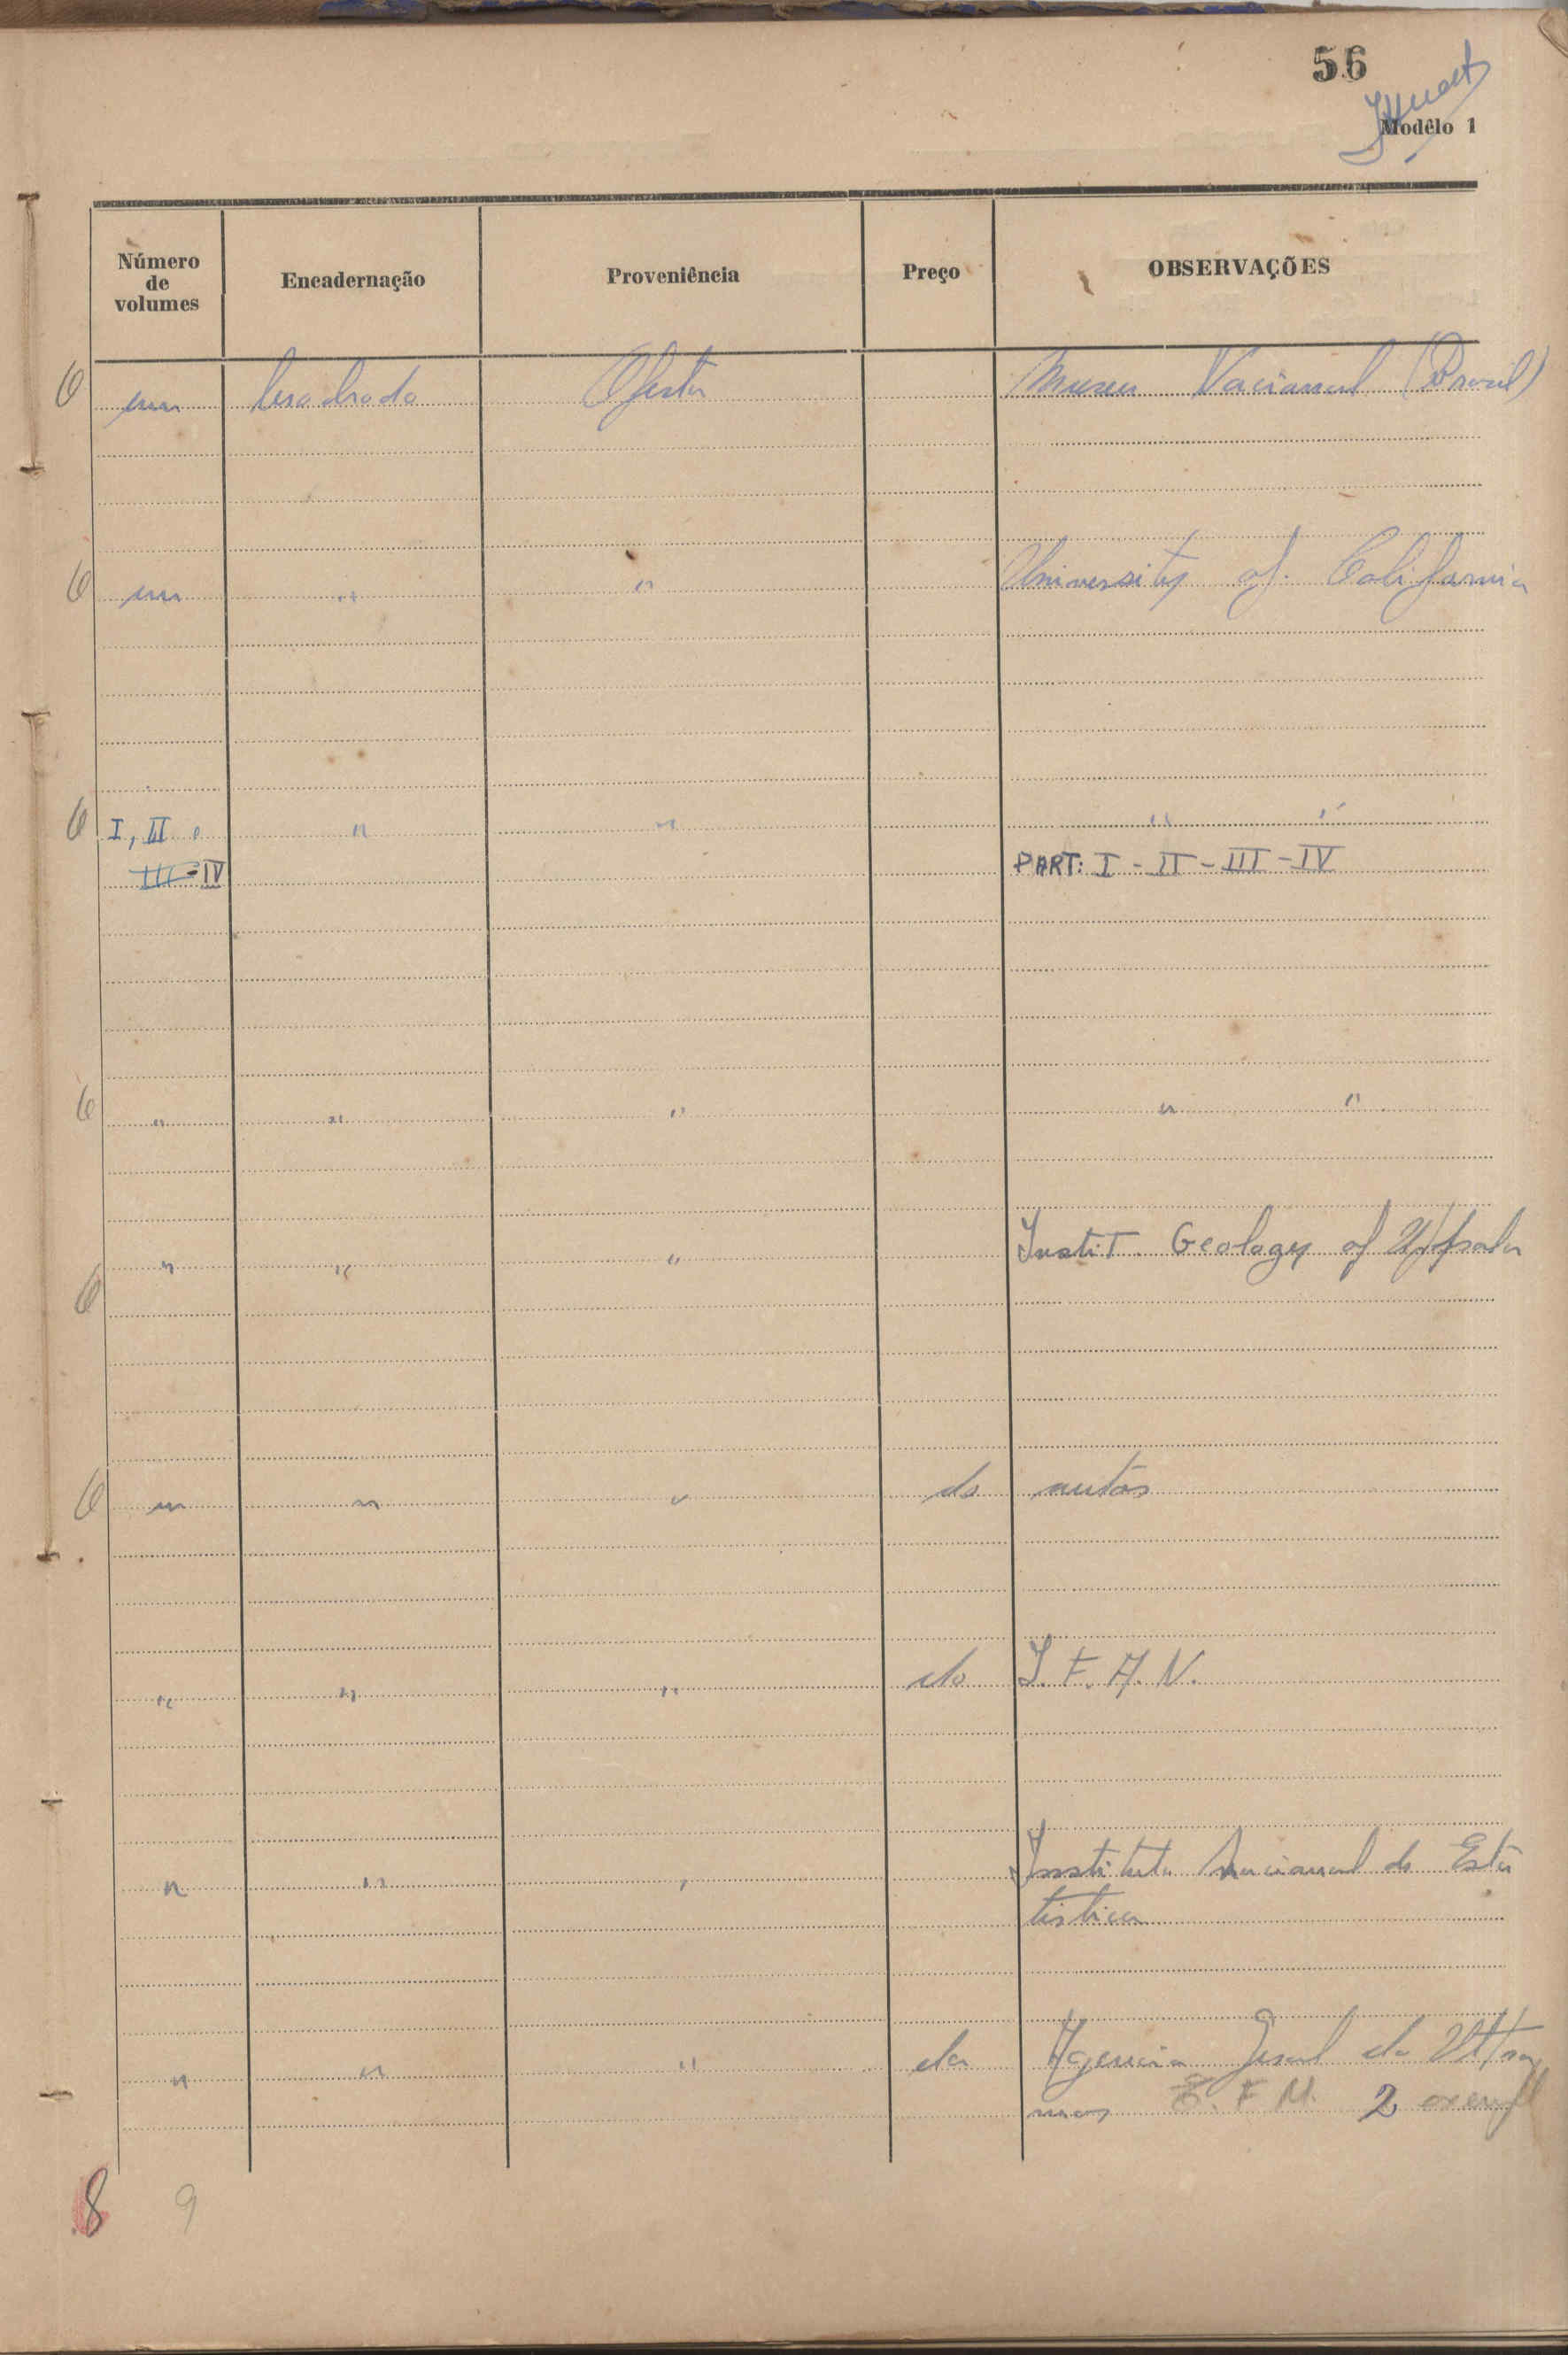 56
Modêlo 1
Número de volumes Encadernação Proveniência Preço OBSERVAÇÕES
um Oferta Museu Nacional (Brasil)
um " " University of California
I, II e " " " "
III-IV PART: I - II - III - IV
" " " " "
" " " Instit. Geology of Upsala
um " " do autor
" " " do I.F.A.N.
" " " Instituto Nacional de Esta
tistica
" " " da Agencia Geral do Ultra
mar E.F.M. 2 exempl
8 9